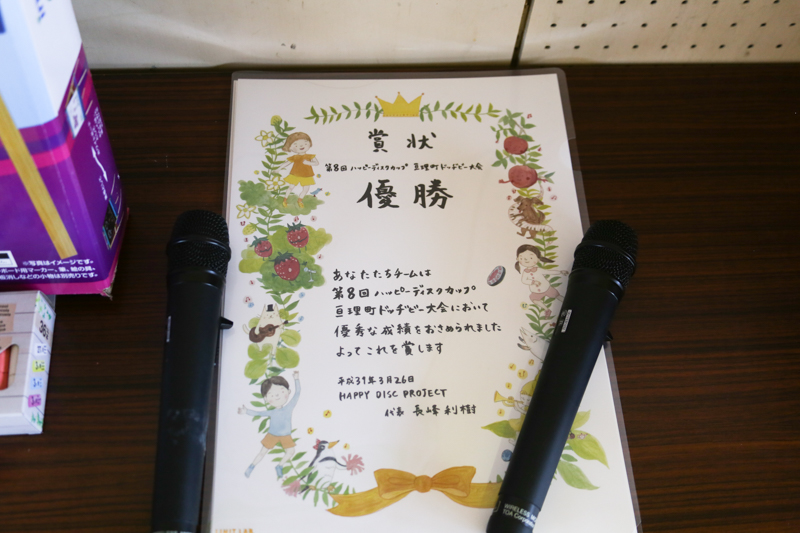 賞状
第8回 ハッピーディスクカップ 亘理町ドッヂビー大会
優勝
あなたたちチームは
第8回 ハッピーディスクカップ
亘理町ドッヂビー大会において
優秀な成績をおさめられました
よってこれを賞します
平成31年3月26日
HAPPY DISC PROJECT
代表 長峰 利樹
※写真はイメージです。
ボード用マーカー、筆、絵の具、
取消しなどの小物は別売りです。
WIRELESS
TOA